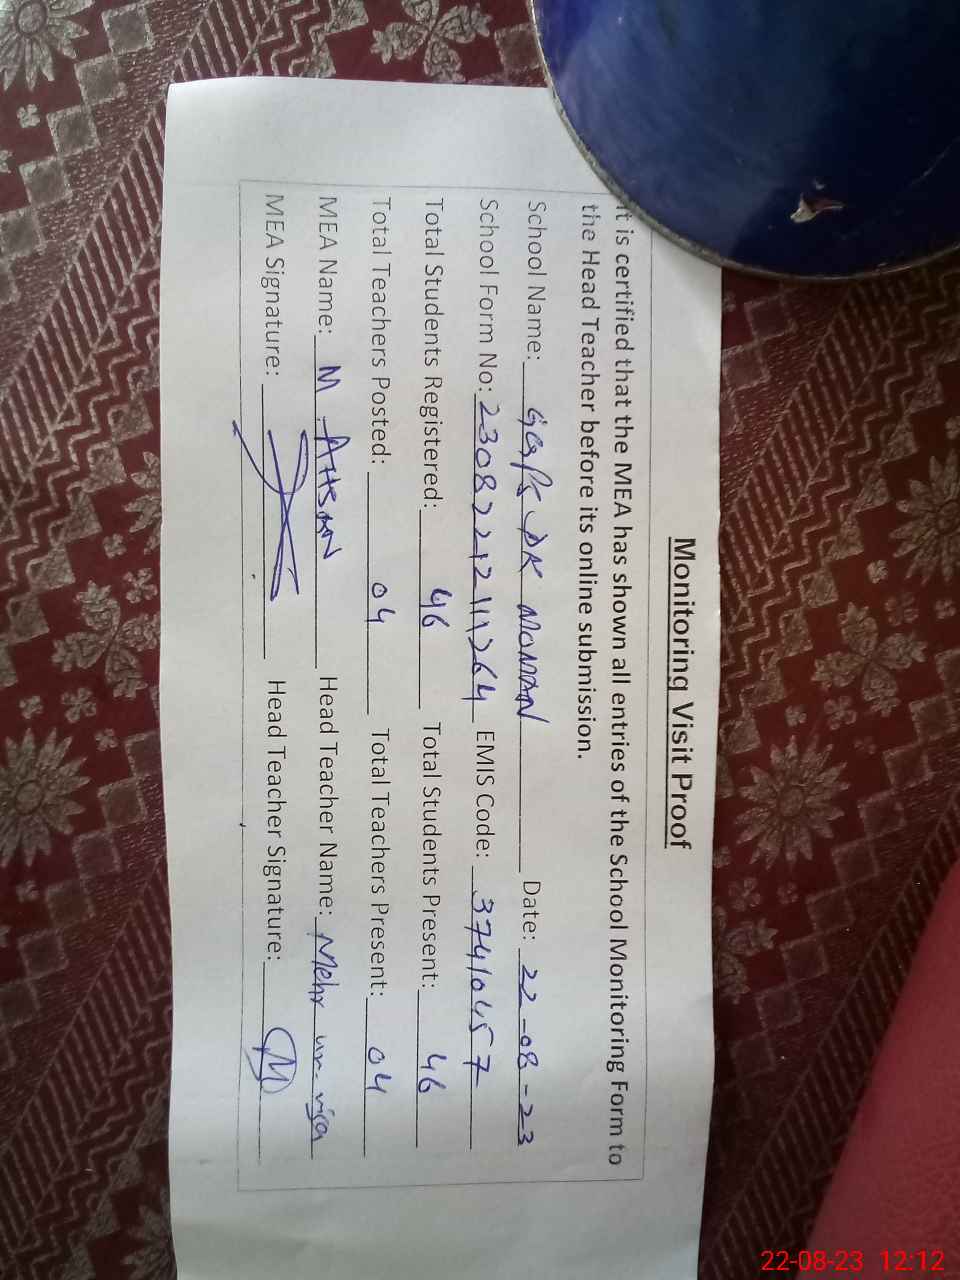 Monitoring Visit Proof
It is certified that the MEA has shown all entries of the School Monitoring Form to
the Head Teacher before its online submission.
School Name: GGPS DK MOMAN Date: 22-08-23
School Form No: EMIS Code: 37410457
Total Students Registered: 46 Total Students Present: 46
Total Teachers Posted: 04 Total Teachers Present: 04
MEA Name: M. AHSAN Head Teacher Name: Mehr un-nisa
MEA Signature: Head Teacher Signature:
22-08-23 12:12